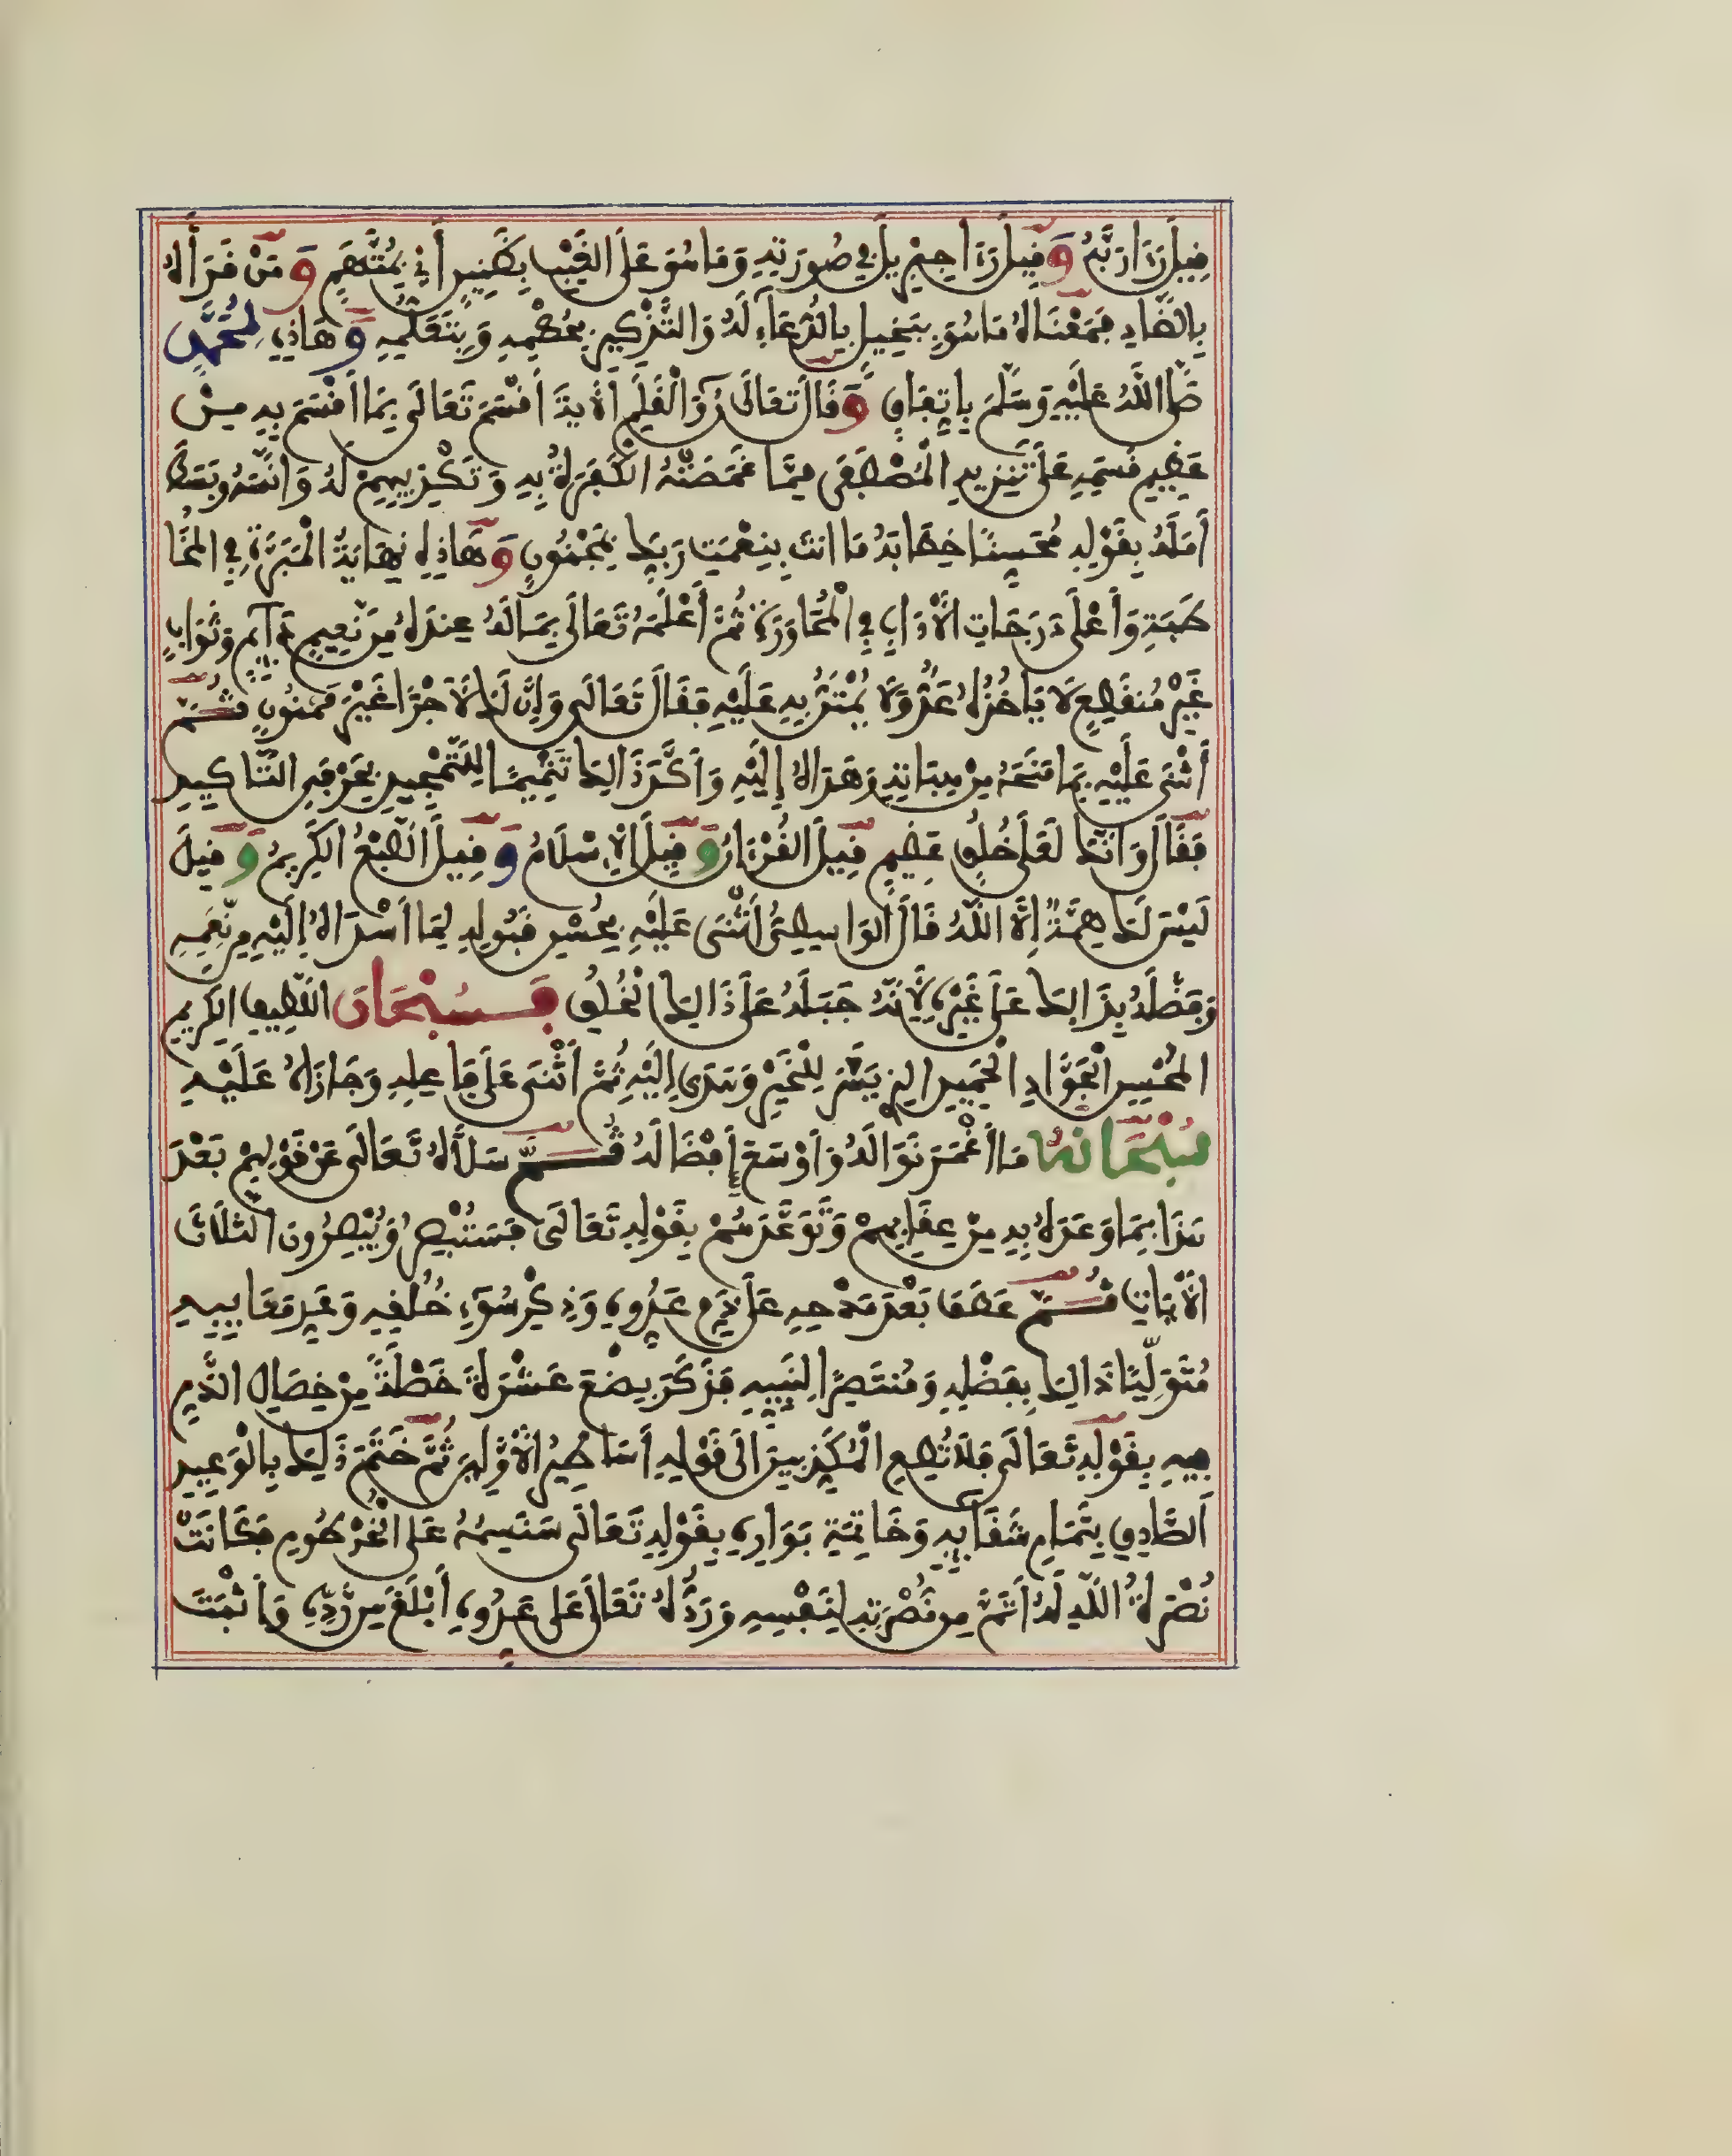 قِيلَ رَءَا رَبَّهُ وَقِيلَ رَءَا جِبْرِيلَ فِي صُورَتِهِ وَمَا هُوَ عَلَى الْغَيْبِ بِظَنِينٍ أَيْ بِمُتَّهَمٍ وَمَنْ قَرَأَهُ
بِالضَّادِ فَمَعْنَاهُ مَا هُوَ بِبَخِيلٍ بِالدُّعَاءِ لَهُ وَالتَّذْكِيرِ بِحُكْمِهِ وَبِتَعَلُّمِهِ وَهَاذِهِ لِمُحَمَّدٍ
صَلَّى اللَّهُ عَلَيْهِ وَسَلَّمَ بِاتِّفَاقٍ وَقَالَ تَعَالَى نٓ وَالْقَلَمِ الْآيَةَ أَقْسَمَ تَعَالَى بِمَا أَقْسَمَ بِهِ مِنْ
عَظِيمِ قَسَمِهِ عَلَى تَنْزِيهِ الْمُصْطَفَى مِمَّا غَمَصَتْهُ الْكَفَرَةُ بِهِ وَتَكْذِيبِهِمْ لَهُ وَانَّسَهُ وَبَسَطَ
أَمَلَهُ بِقَوْلِهِ مُحَسِّنًا خِطَابَهُ مَا انتَ بِنِعْمَتِ رَبِّكَ بِمَجْنُونٍ وَهَاذِهِ نِهَايَةُ الْمَبَرَّةِ فِي الْمُخَا
طَبَةِ وَأَعْلَى دَرَجَاتِ الْأَدَابِ فِي الْمُحَاوَرَةِ ثُمَّ أَعْلَمَهُ تَعَالَى بِمَا لَهُ عِندَهُ مِن نَّعِيمٍ دَآئِمٍ وَثَوَابٍ
غَيْرِ مُنقَطِعٍ لَا يَاخُذُهُ عَدٌّ وَلَا يُمْتَنُّ بِهِ عَلَيْهِ فَقَالَ تَعَالَى وَإِنَّ لَكَ لَأَجْرًا غَيْرَ مَمْنُونٍ ثُمَّ
أَثْنَى عَلَيْهِ بِمَا مَنَحَهُ مِنْ هِبَاتِهِ وَهَدَاهُ إِلَيْهِ وَأَكَّدَ ذَالِكَ تَتْمِيمًا لِلتَّمْجِيدِ بِحَرْفَيِ التَّاكِيدِ
فَقَالَ وَإِنَّكَ لَعَلَى خُلُقٍ عَظِيمٍ قِيلَ الْقُرْءَانُ وَقِيلَ الْإِسْلَامُ وَقِيلَ الطَّبْعُ الْكَرِيمُ وَقِيلَ
لَيْسَ لَكَ هِمَّةٌ إِلَّا اللَّهُ قَالَ الْوَاسِطِيُّ أَثْنَى عَلَيْهِ بِحُسْنِ قَبُولِهِ لِمَا أَسْدَاهُ إِلَيْهِ مِن نِّعَمِهِ
وَفَضَّلَهُ بِذَالِكَ عَلَى غَيْرِهِ لِأَنَّهُ جَبَلَهُ عَلَى ذَالِكَ الْخُلُقِ فَسُبْحَانَ اللَّطِيفِ الْكَرِيمِ
الْمُحْسِنِ الْجَوَّادِ الْحَمِيدِ الذِي يَسَّرَ لِلْخَيْرِ وَهَدَى إِلَيْهِ ثُمَّ أَثْنَى عَلَى فَاعِلِهِ وَجَازَاهُ عَلَيْهِ
سُبْحَانَهُ مَا أَغْمَرَ نَوَالَهُ وَأَوْسَعَ إِفْضَالَهُ ثُمَّ سَلَّاهُ تَعَالَى عَنْ قَوْلِهِمْ بَعْدَ
هَذَا بِمَا وَعَدَهُ بِهِ مِنْ عِقَابِهِمْ وَتَوَعَّدَهُمْ بِقَوْلِهِ تَعَالَى فَسَتُبْصِرُ وَيُبْصِرُونَ الثَّلَاثَ
الْآيَاتِ ثُمَّ عَطَفَ بَعْدَ مَدْحِهِ عَلَى ذَمِّ عَدُوِّهِ وَذِكْرِ سُوءِ خُلُقِهِ وَعَدِّ مَعَايِبِهِ
مُتَوَلِّيًا ذَالِكَ بِفَضْلِهِ وَمُنتَصِرًا لِنَبِيِّهِ فَذَكَرَ بِضْعَ عَشْرَةَ خَصْلَةً مِنْ خِصَالِ الذَّمِّ
فِيهِ بِقَوْلِهِ تَعَالَى فَلَا تُطِعِ الْمُكَذِّبِينَ الَى قَوْلِهِ أَسَاطِيرُ الْأَوَّلِينَ ثُمَّ خَتَمَ ذَلِكَ بِالْوَعِيدِ
الصَّادِقِ بِتَمَامِ شَقَائِهِ وَخَاتِمَةِ بَوَارِهِ بِقَوْلِهِ تَعَالَى سَنَسِمُهُ عَلَى الْخُرْطُومِ فَكَانَتْ
نُصْرَةُ اللَّهِ لَهُ أَتَمَّ مِن نُصْرَتِهِ لِنَفْسِهِ وَرَدُّهُ تَعَالَى عَلَى عَدُوِّهِ أَبْلَغَ مِن رَّدِّهِ وَأَثْبَتَ